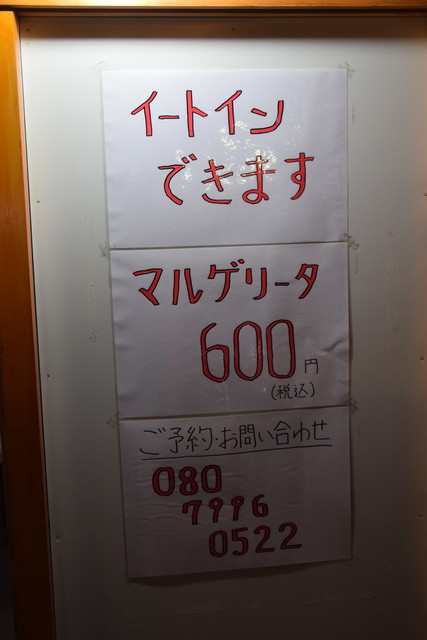 イートイン
できます
マルゲリータ
600円
(税込)
ご予約・お問い合わせ
080
7996
0522